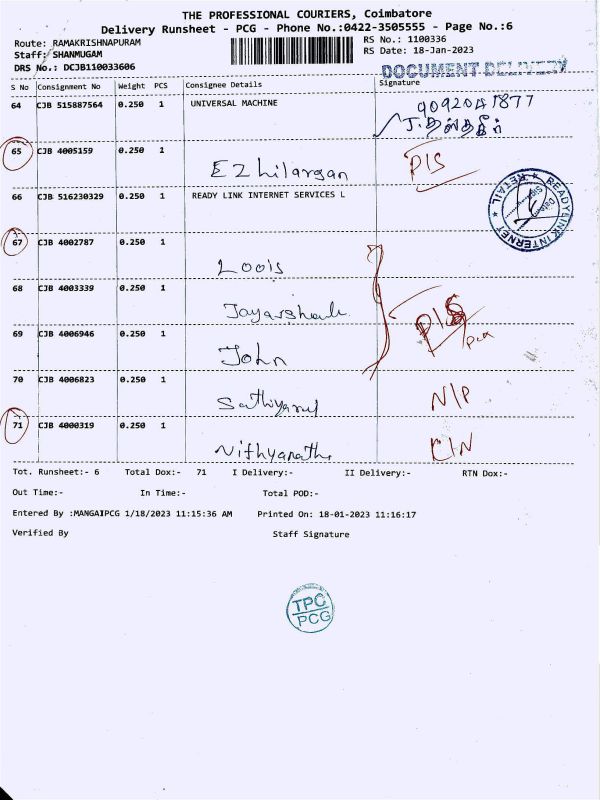 THE PROFESSIONAL COURIERS, Coimbatore
Delivery Runsheet - PCG - Phone No.:0422-3505555 - Page No.:6
Route: RAMAKRISHNAPURAM
RS No.: 1100336
Staff: SHANMUGAM
RS Date: 18-Jan-2023
DRS No.: DCJB110033606
DOCUMENT DELIVERY
S No Consignment No Weight PCS Consignee Details Signature
64 CJB 515887564 0.250 1 UNIVERSAL MACHINE
65 CJB 4005159 0.250 1
Ezhilarasan
66 CJB 516230329 0.250 1 READY LINK INTERNET SERVICES L
READYLINK INTERNET * RETAIL *
67 CJB 4002787 0.250 1
Loois
68 CJB 4003339 0.250 1
69 CJB 4006946 0.250 1
John
70 CJB 4006823 0.250 1
N/P
71 CJB 4000319 0.250 1
Tot. Runsheet:- 6 Total Dox:- 71 I Delivery:- II Delivery:- RTN Dox:-
Out Time:- In Time:- Total POD:-
Entered By :MANGAIPCG 1/18/2023 11:15:36 AM Printed On: 18-01-2023 11:16:17
Verified By Staff Signature
TPC
PCG